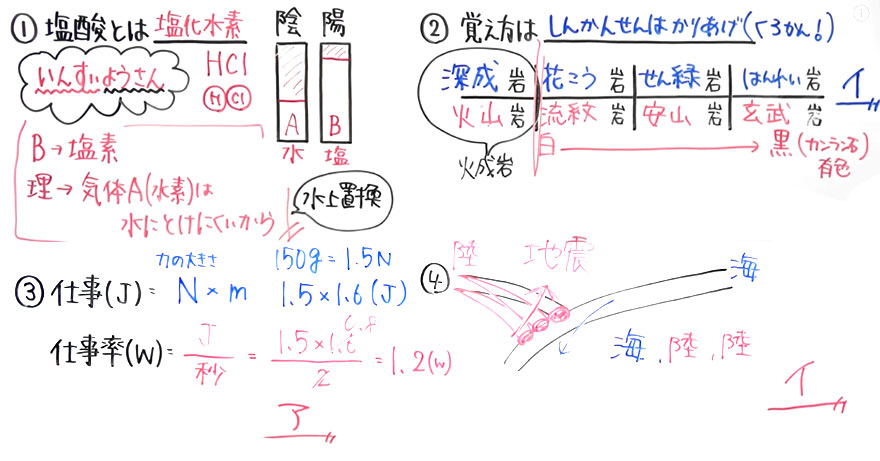 ① 塩酸とは 塩化水素
いんすいようさん
HCl
H Cl
陰 陽
A B
水 塩
B→塩素
理→気体A(水素)は
水にとけにくいから
水上置換
② 覚え方は しんかんせんはかりあげ(くろかん!)
深成岩 花こう岩 せん緑岩 はんれい岩
火山岩 流紋岩 安山岩 玄武岩
イ
火成岩
白 → 黒(カンラン石)
有色
力の大きさ 150g=1.5N
③ 仕事(J)= N×m 1.5×1.6(J)
仕事率(W)= J/秒 = 1.5×1.6/2 = 1.2(W)
0.8
ア
④ 陸 地震 海
海, 陸, 陸
イ